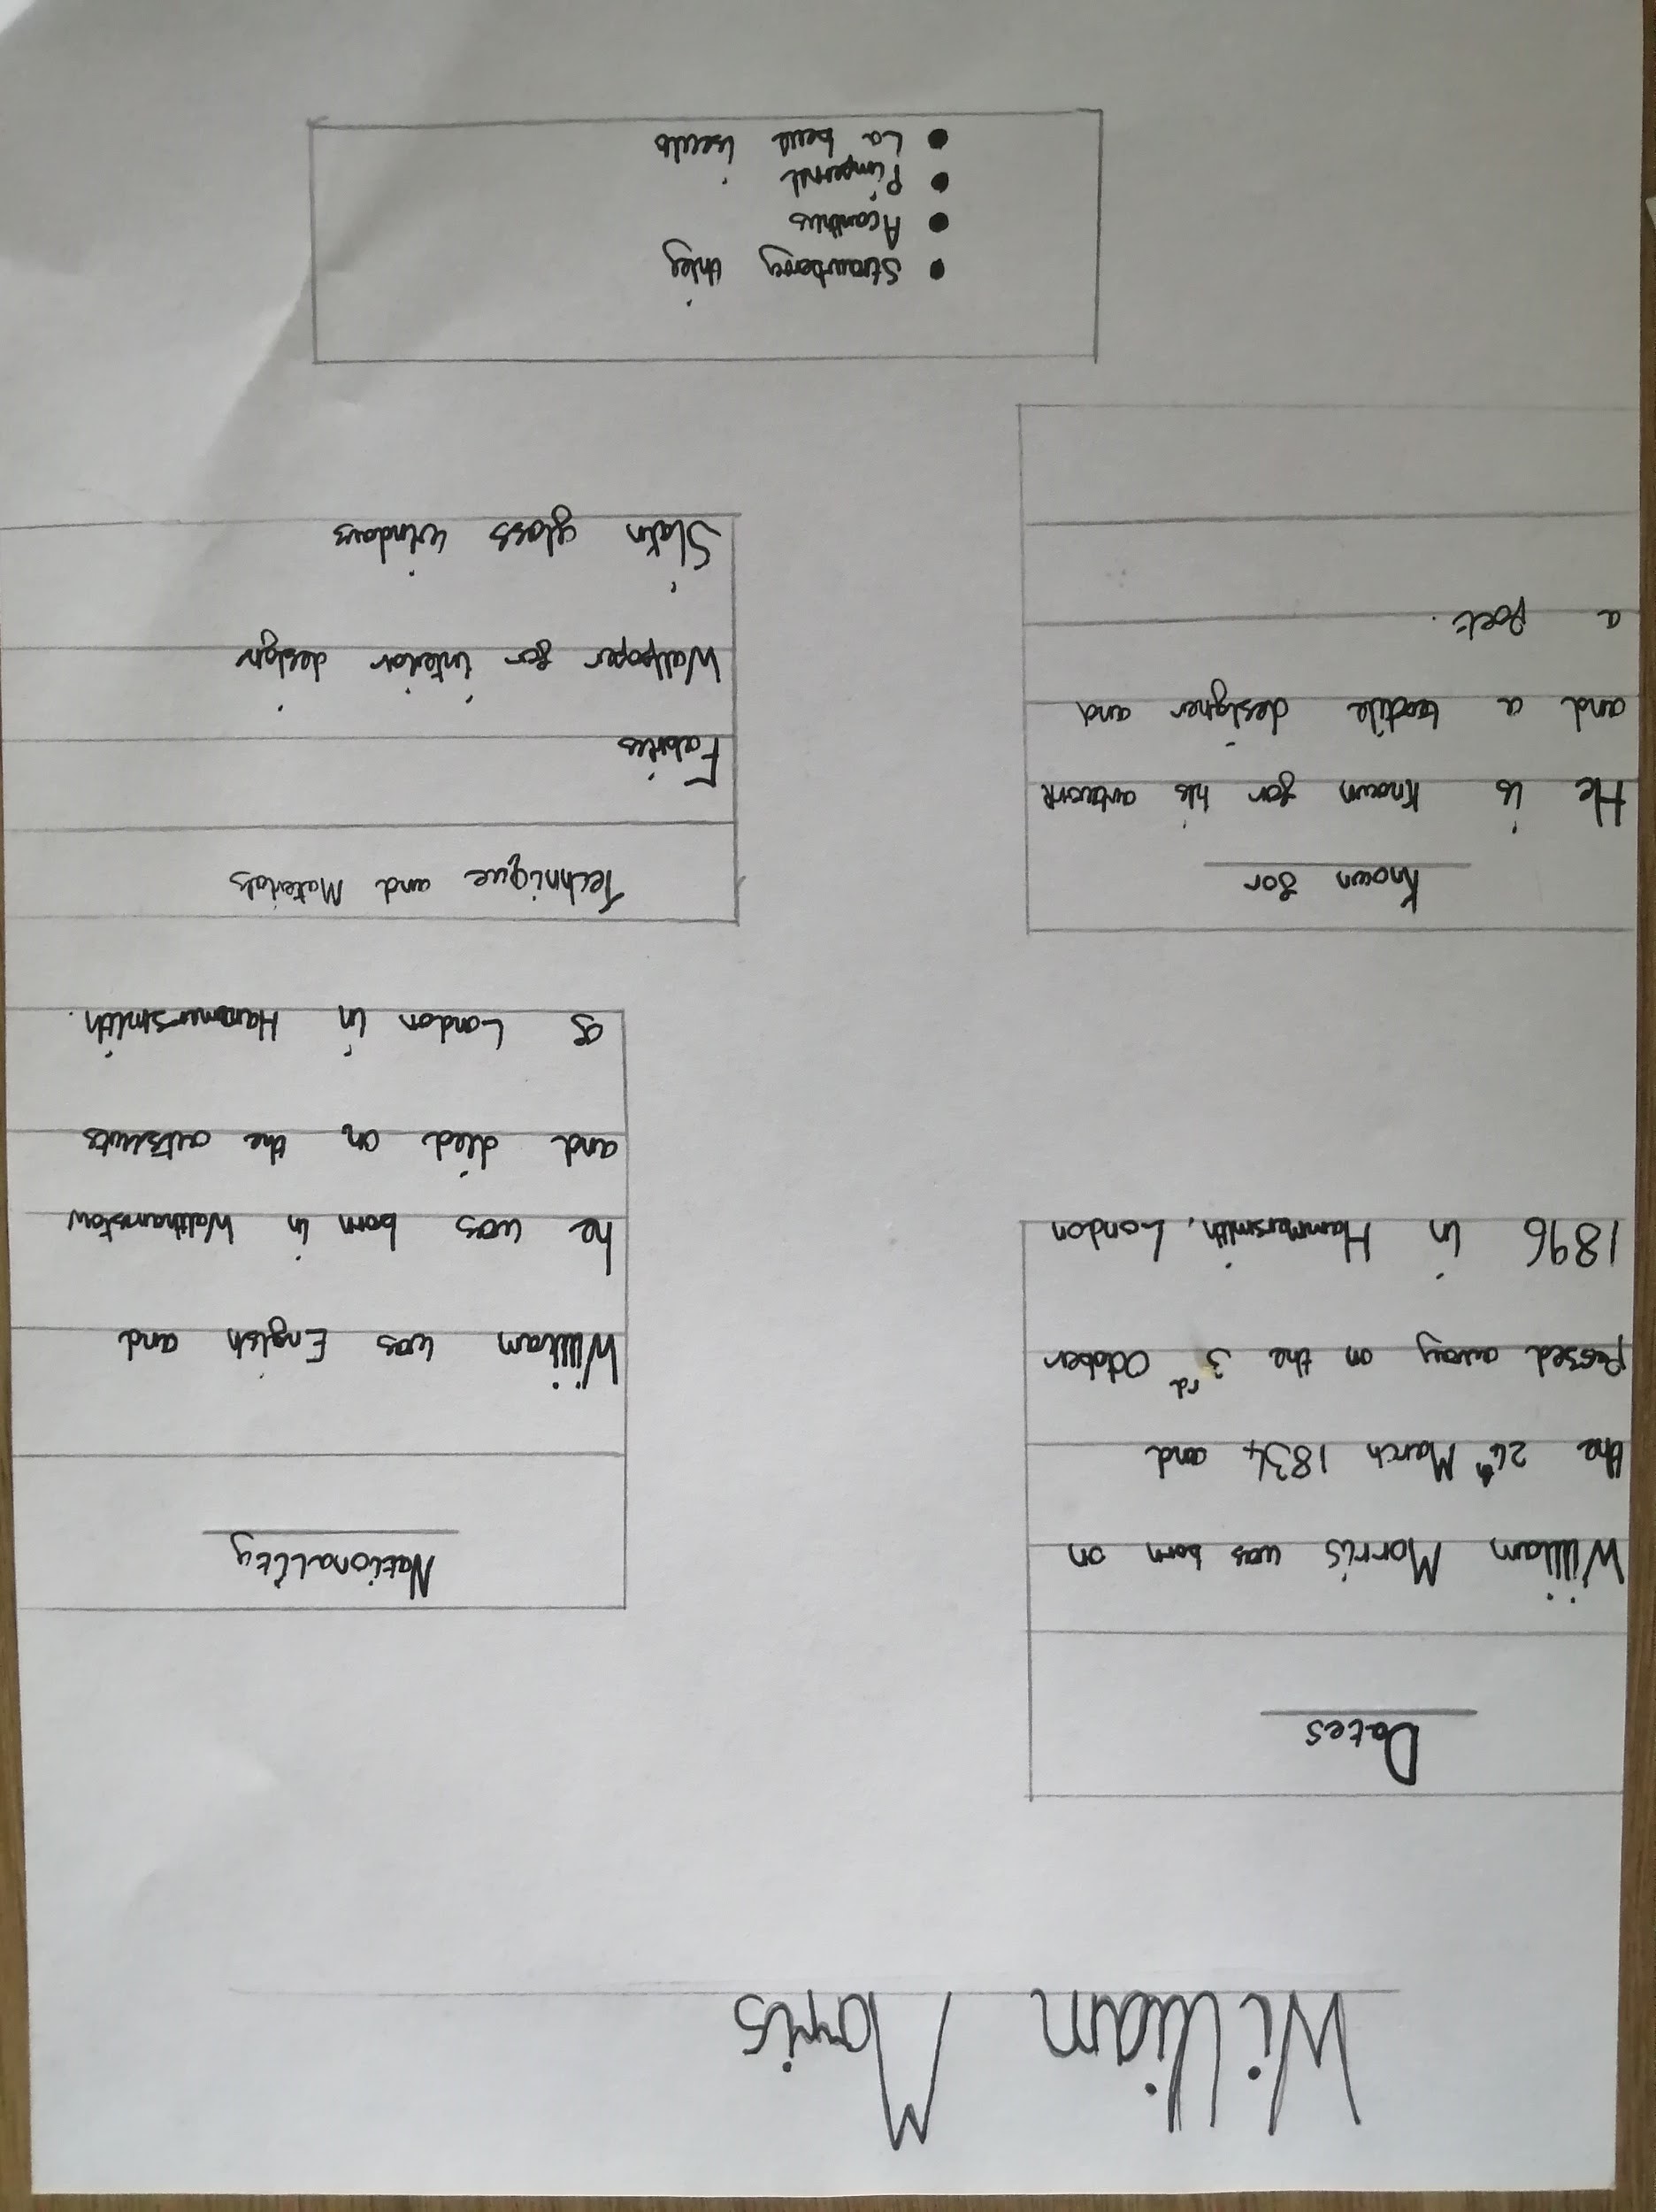 William Morris
Dates
William Morris was born on
the 24th March 1834 and
Passed away on the 3rd October
1896 in Hammersmith, London
Nationality
William was English and
he was born in Walthamstow
and died on the outskirts
of London in Hammersmith.
Known for
He is Known for his artwork
and a textile designer and
a Poet.
Technique and Materials
Fabrics
Wallpaper for interior design
Stain glass windows
Strawberry thieg
Acanthus
Pimpernel
La belle iseult